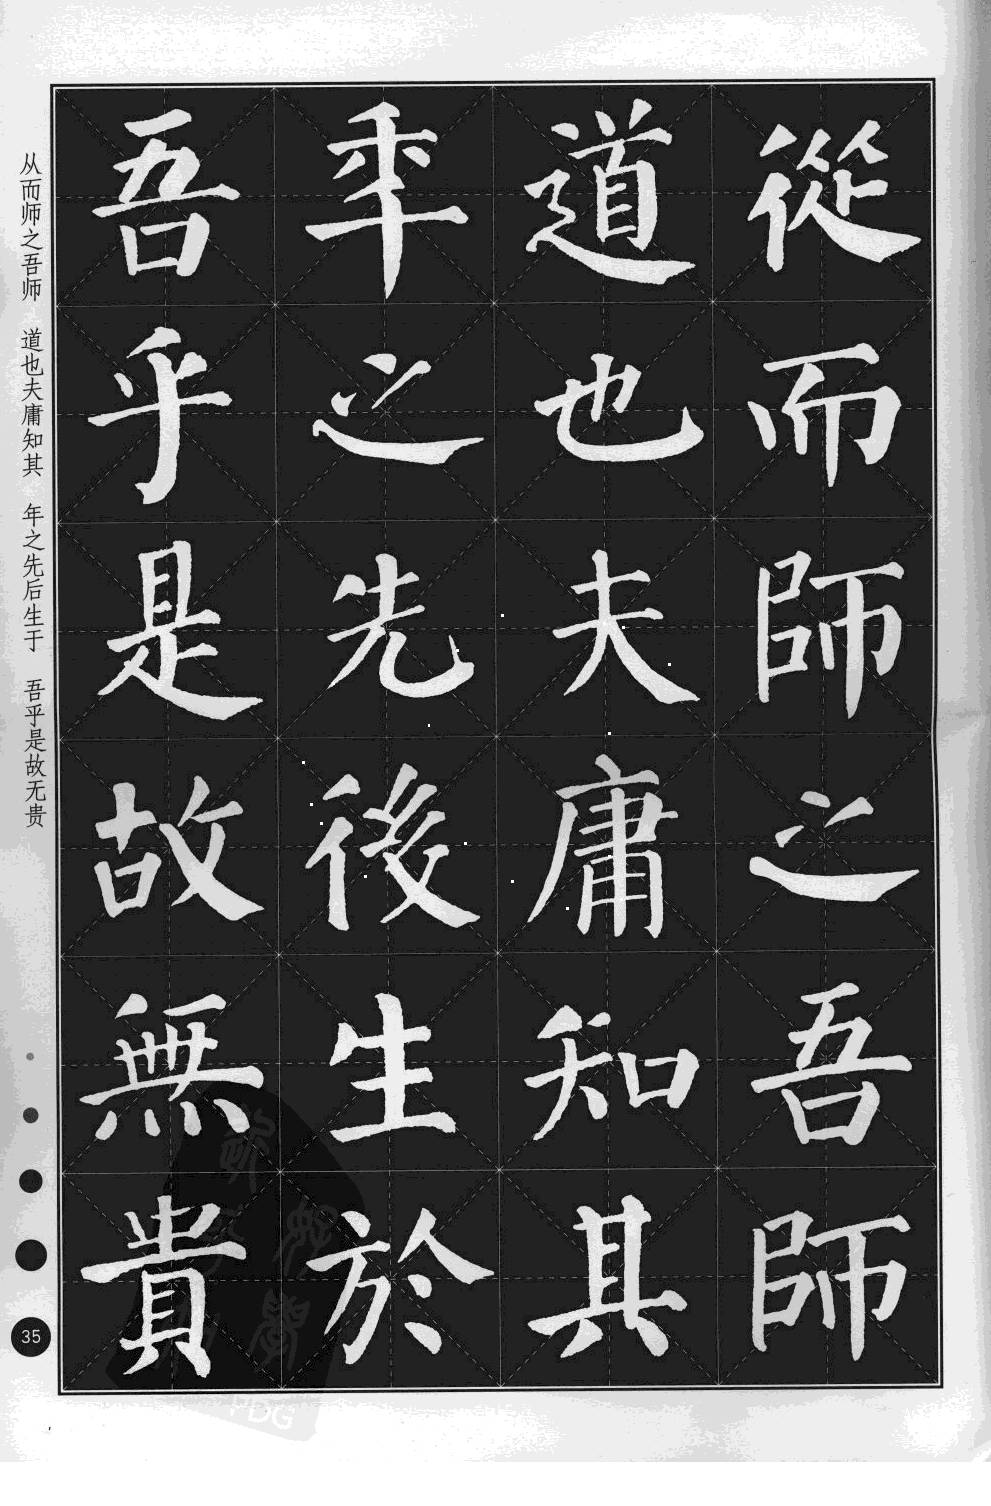 從而師之吾師
道也夫庸知其
年之先後生於
吾乎是故無貴
从而师之吾师 道也夫庸知其 年之先后生于 吾乎是故无贵
35
PDG